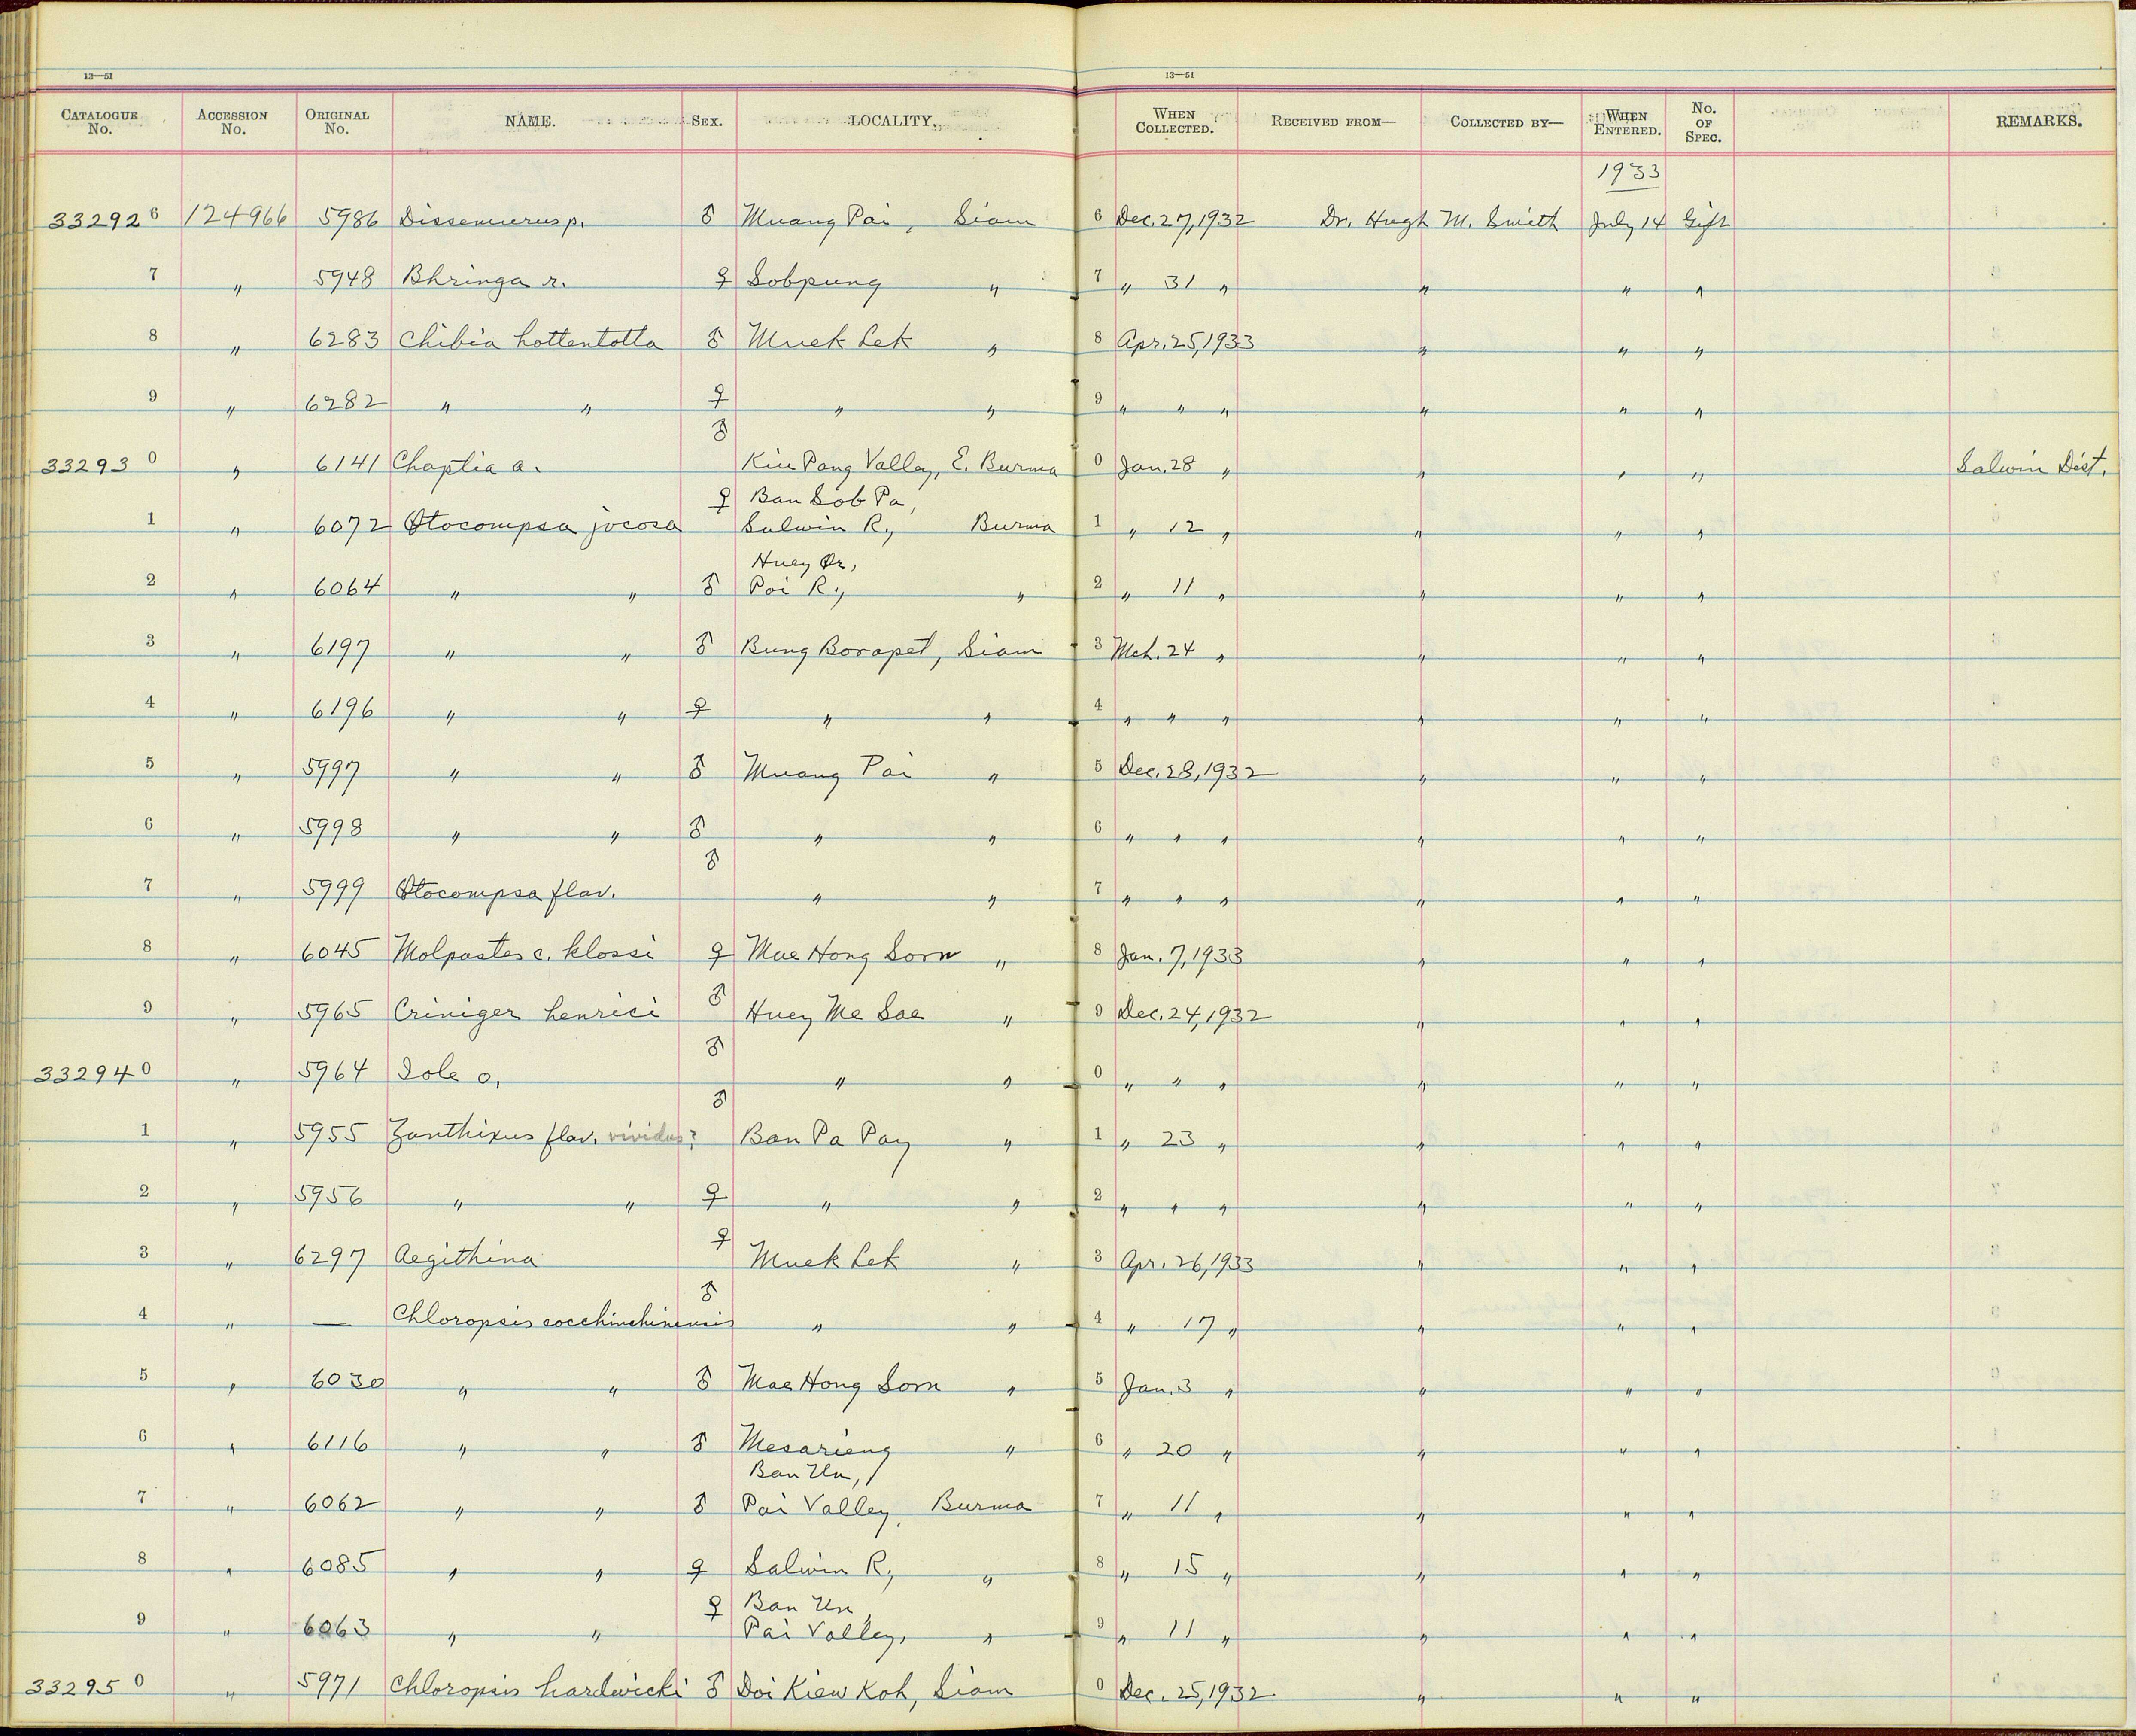 13—51 13—51
CATALOGUE No. ACCESSION No. ORIGINAL No. NAME. SEX. LOCALITY. WHEN COLLECTED. RECEIVED FROM— COLLECTED BY— WHEN ENTERED. No. OF SPEC. REMARKS.
1933
332926 124966 5986 Dissemurus p. ♂ Muang Pai, Siam 6 Dec. 27, 1932 Dr. Hugh M. Smith July 14 Gift
7 " 5948 Bhringa r. ♀ Sobpung " 7 " 31 " " " "
8 " 6283 Chibia hottentotta ♂ Muek Lek " 8 Apr. 25, 1933 " " "
9 " 6282 " " ♀ " " 9 " " " " " "
332930 " 6141 Chaptia a. ♂ Kiu Pang Valley, E. Burma 0 Jan. 28 " " " " Salwin Dist.
♀ Ban Sob Pa,
1 " 6072 Otocompsa jocosa Salwin R., Burma 1 " 12 " " " "
Huey Or,
2 " 6064 " " ♂ Pai R., " 2 " 11 " " " "
3 " 6197 " " ♂ Bung Borapet, Siam 3 Mch. 24 " " " "
4 " 6196 " " ♀ " " 4 " " " " " "
5 " 5997 " " ♂ Muang Pai " 5 Dec. 28, 1932 " " "
6 " 5998 " " ♂ " " 6 " " " " " "
7 " 5999 Otocompsa flav. ♂ " " 7 " " " " " "
8 " 6045 Molpastes c. klossi ♀ Mae Hong Sorn " 8 Jan. 7, 1933 " " "
9 " 5965 Criniger henrici ♂ Huey Me Sae " 9 Dec. 24, 1932 " " "
332940 " 5964 Iole o. ♂ " " 0 " " " " " "
1 " 5955 Xanthixus flav. vividus? ♂ Ban Pa Pay " 1 " 23 " " " "
2 " 5956 " " ♀ " " 2 " " " " " "
3 " 6297 Aegithina ♀ Muek Lek " 3 Apr. 26, 1933 " " "
4 " — Chloropsis cocchinchinensis ♂ " " 4 " 17 " " " "
5 " 6030 " " ♂ Mae Hong Sorn " 5 Jan. 3 " " " "
6 " 6116 " " ♂ Mesarieng " 6 " 20 " " " "
Ban Un,
7 " 6062 " " ♂ Pai Valley, Burma 7 " 11 " " " "
8 " 6085 " " ♀ Salwin R., " 8 " 15 " " " "
♀ Ban Un,
9 " 6063 " " Pai Valley, " 9 " 11 " " " "
332950 " 5971 Chloropsis hardwicki ♂ Doi Kiew Koh, Siam 0 Dec. 25, 1932 " " "